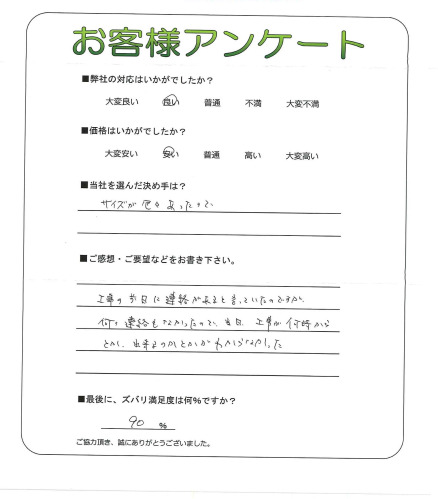 お客様アンケート
■弊社の対応はいかがでしたか？
大変良い 良い 普通 不満 大変不満
■価格はいかがでしたか？
大変安い 安い 普通 高い 大変高い
■当社を選んだ決め手は？
サイズが色々あったので
■ご感想・ご要望などをお書き下さい。
工事の前日に連絡があると言っていたのですが、
何も連絡もなかったので、当日、工事が何時から
とか、出来るのかとかがわからなかった
■最後に、ズバリ満足度は何％ですか？
90 %
ご協力頂き、誠にありがとうございました。